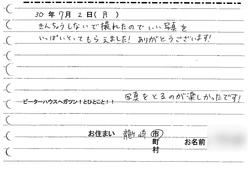 30年7月2日(月)
きんちょうしないで撮れたのでいい写真を
いっぱいとってもらえました!ありがとうございます!
ピーターハウスへガツン!とひとこと!!
写真をとるのが楽しかったです!
お住まい 龍ヶ崎 市 町 村 お名前